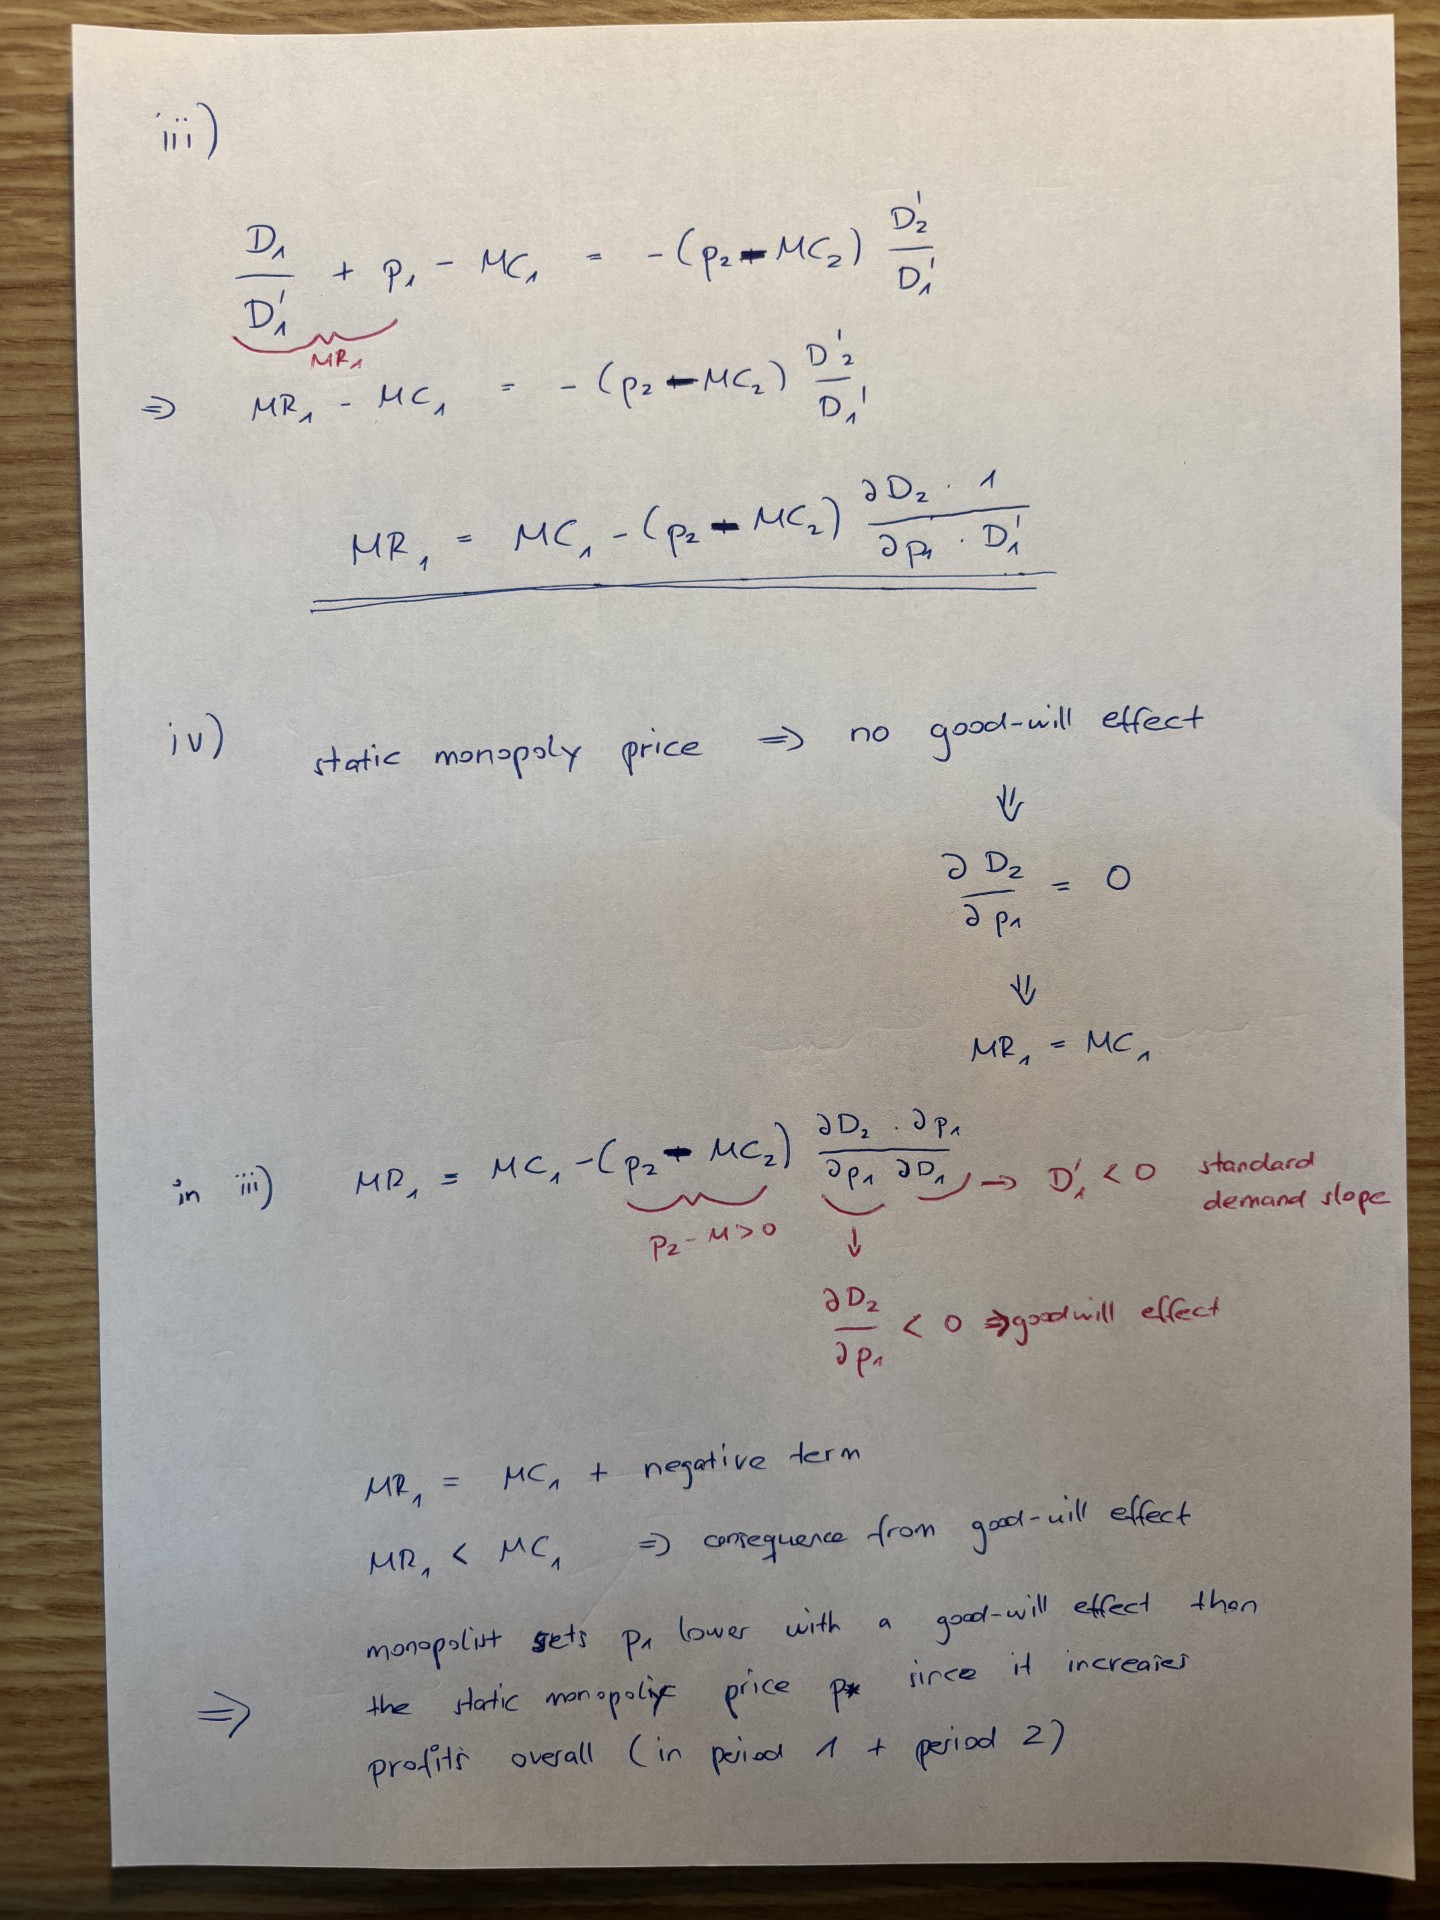 iii)
D₁/D₁' + p₁ - MC₁ = -(p₂ - MC₂) D₂'/D₁'
MR₁
⇒ MR₁ - MC₁ = -(p₂ - MC₂) D₂'/D₁'
MR₁ = MC₁ - (p₂ - MC₂) ∂D₂ · 1 / ∂p₁ · D₁'
iv) static monopoly price ⇒ no good-will effect
⇓
∂D₂/∂p₁ = 0
⇓
MR₁ = MC₁
in iii) MR₁ = MC₁ - (p₂ - MC₂) ∂D₂ · ∂p₁ / ∂p₁ ∂D₁ → D₁' < 0 standard
demand slope
p₂ - M > 0 ↓
∂D₂/∂p₁ < 0 ⇒ goodwill effect
MR₁ = MC₁ + negative term
MR₁ < MC₁ ⇒ consequence from good-will effect
monopolist sets p₁ lower with a good-will effect than
⇒ the static monopoly price p* since it increases
profits overall (in period 1 + period 2)